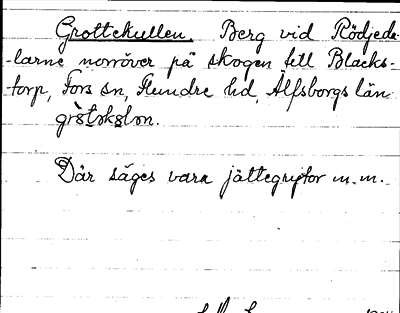 Grottekullen. Berg vid Rödjede-
-larne norröver på skogen till Blacks-
-torp, Fors sn, Flundre hd, Älfsborgs län
Där säges vara jättegrytor m.m.